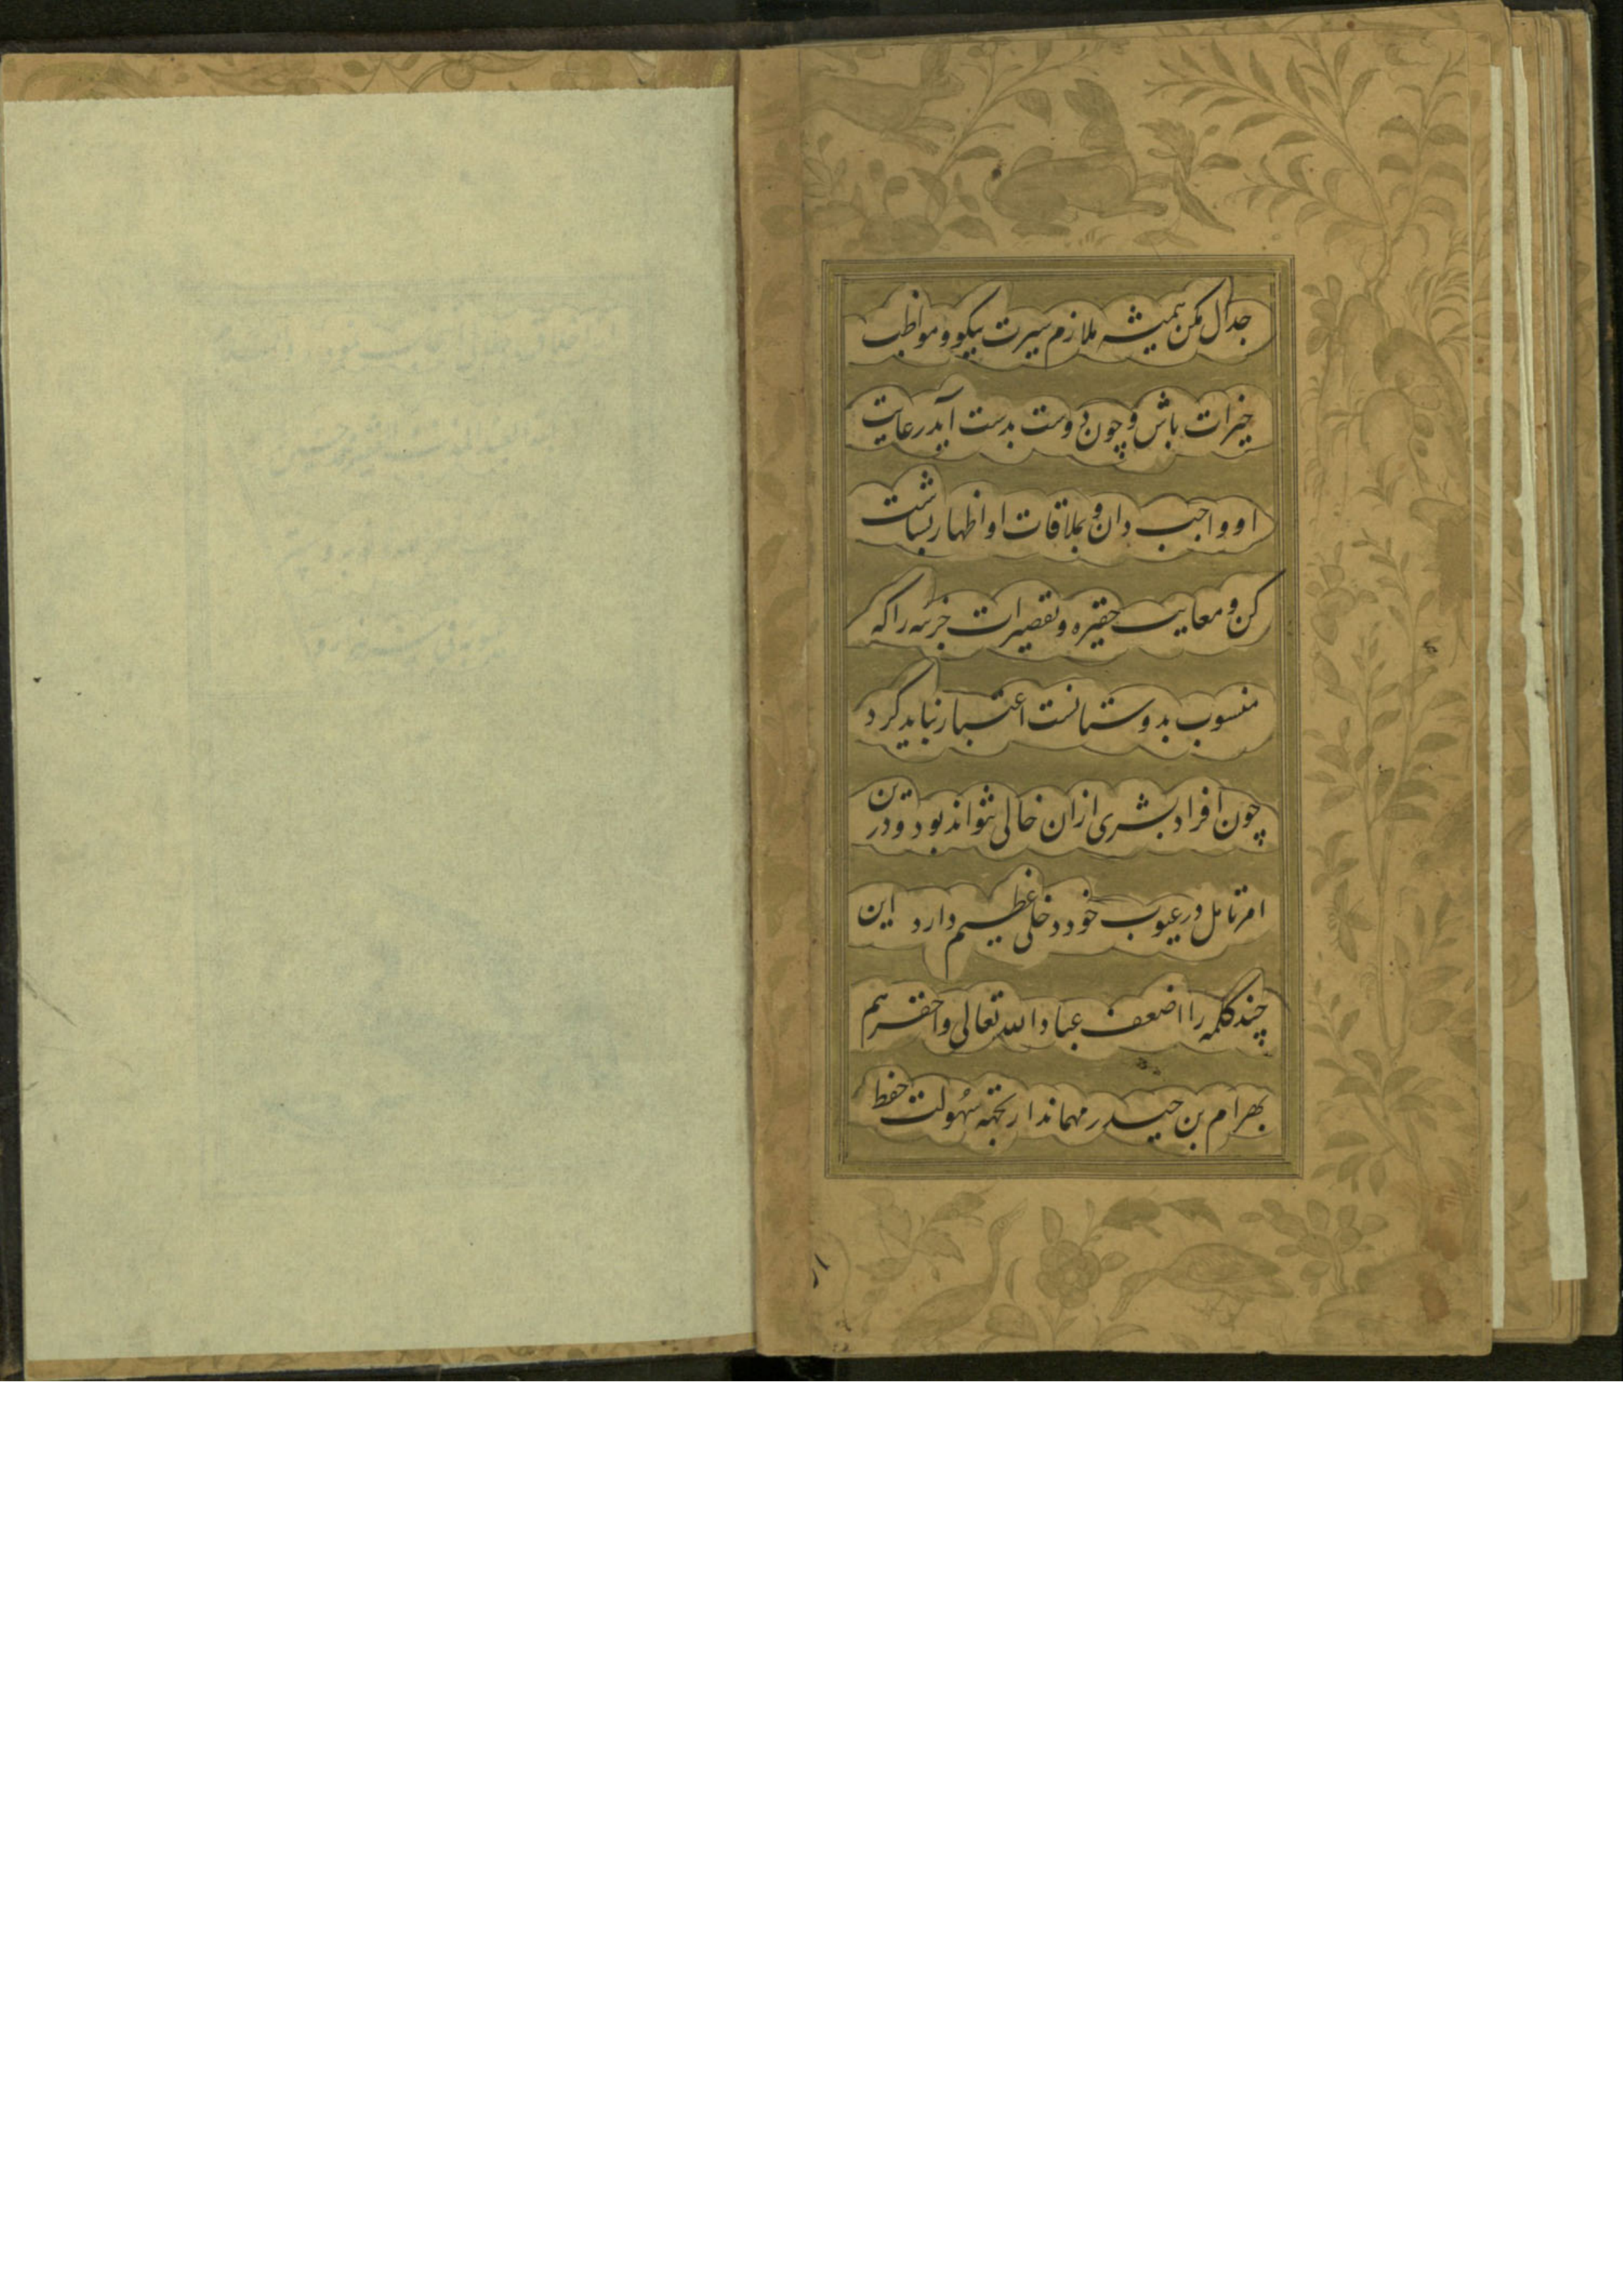 جدال مکن همیشه ملازم سیرت نیکو و مواظب
خیرات باش و چون دوست بدست آید رعایت
او واجب دان و بملاقات او اظهار بشاشت
کن و معایب حقیره و تقصیرات جزئیه را که
منسوب بدوستانست اعتبار نباید کرد
چون افراد بشری ازان خالی نتواند بود و درین
امر تامل در عیوب خود دخلی عظیم دارد این
چند کلمه را اضعف عباد الله تعالی واحقرهم
بهرام بن حیدر مهماندار بجهة سهولت حفظ